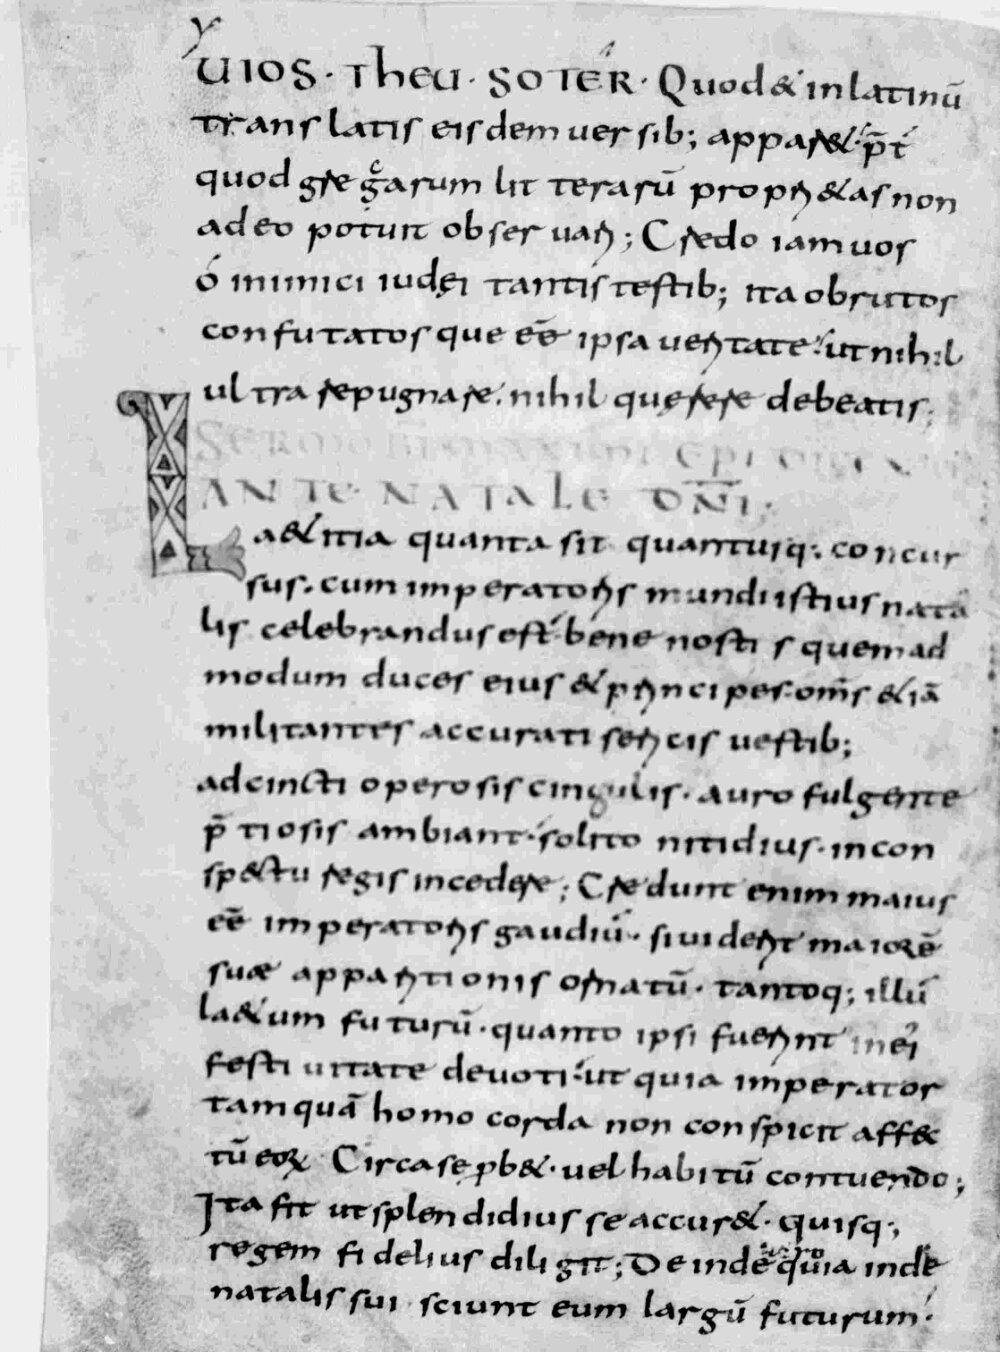 y
UIOS · Theu · SOTER · Quod & in latinū
translatis eisdem versib; appar&· p̄t
quod gregarum litterarū propri&as non
adeo potuit observari; Credo iam vos
ó inimici iudęi tantis testib; ita obrutos
confutatosque eē ipsa veritate· ut nihil
ultra repugnare· nihil quęrere debeatis;
SERMO BI MAXIMI EPI
ANTE NATALE DNI·
La&itia quanta sit quantusq; concur
sus· cum imperatoris mundi istius nata
lis celebrandus est· bene nostis quemad
modum duces eius & principes· oms &iā
militantes accurati sericis vestib;
adcincti operosis cingulis· auro fulgente
p̄tiosis ambiant· solito nitidius· in con
spectu regis incedere; Credunt enim maius
eē imperatoris gaudiū· si viderit maiorē
suæ apparitionis ornatū· tantoq; illū
la&um futurū· quanto ipsi fuerint in ei
festivitate devoti· ut quia imperator
tamquā homo corda non conspicit affec
tū eoꝝ Circa se ꝓb&· vel habitū contuendo;
Ita fit ut splendidius se accur&· quisq;
regem fidelius diligit; Deinde quia inde
natalis sui sciunt eum largū futurum·